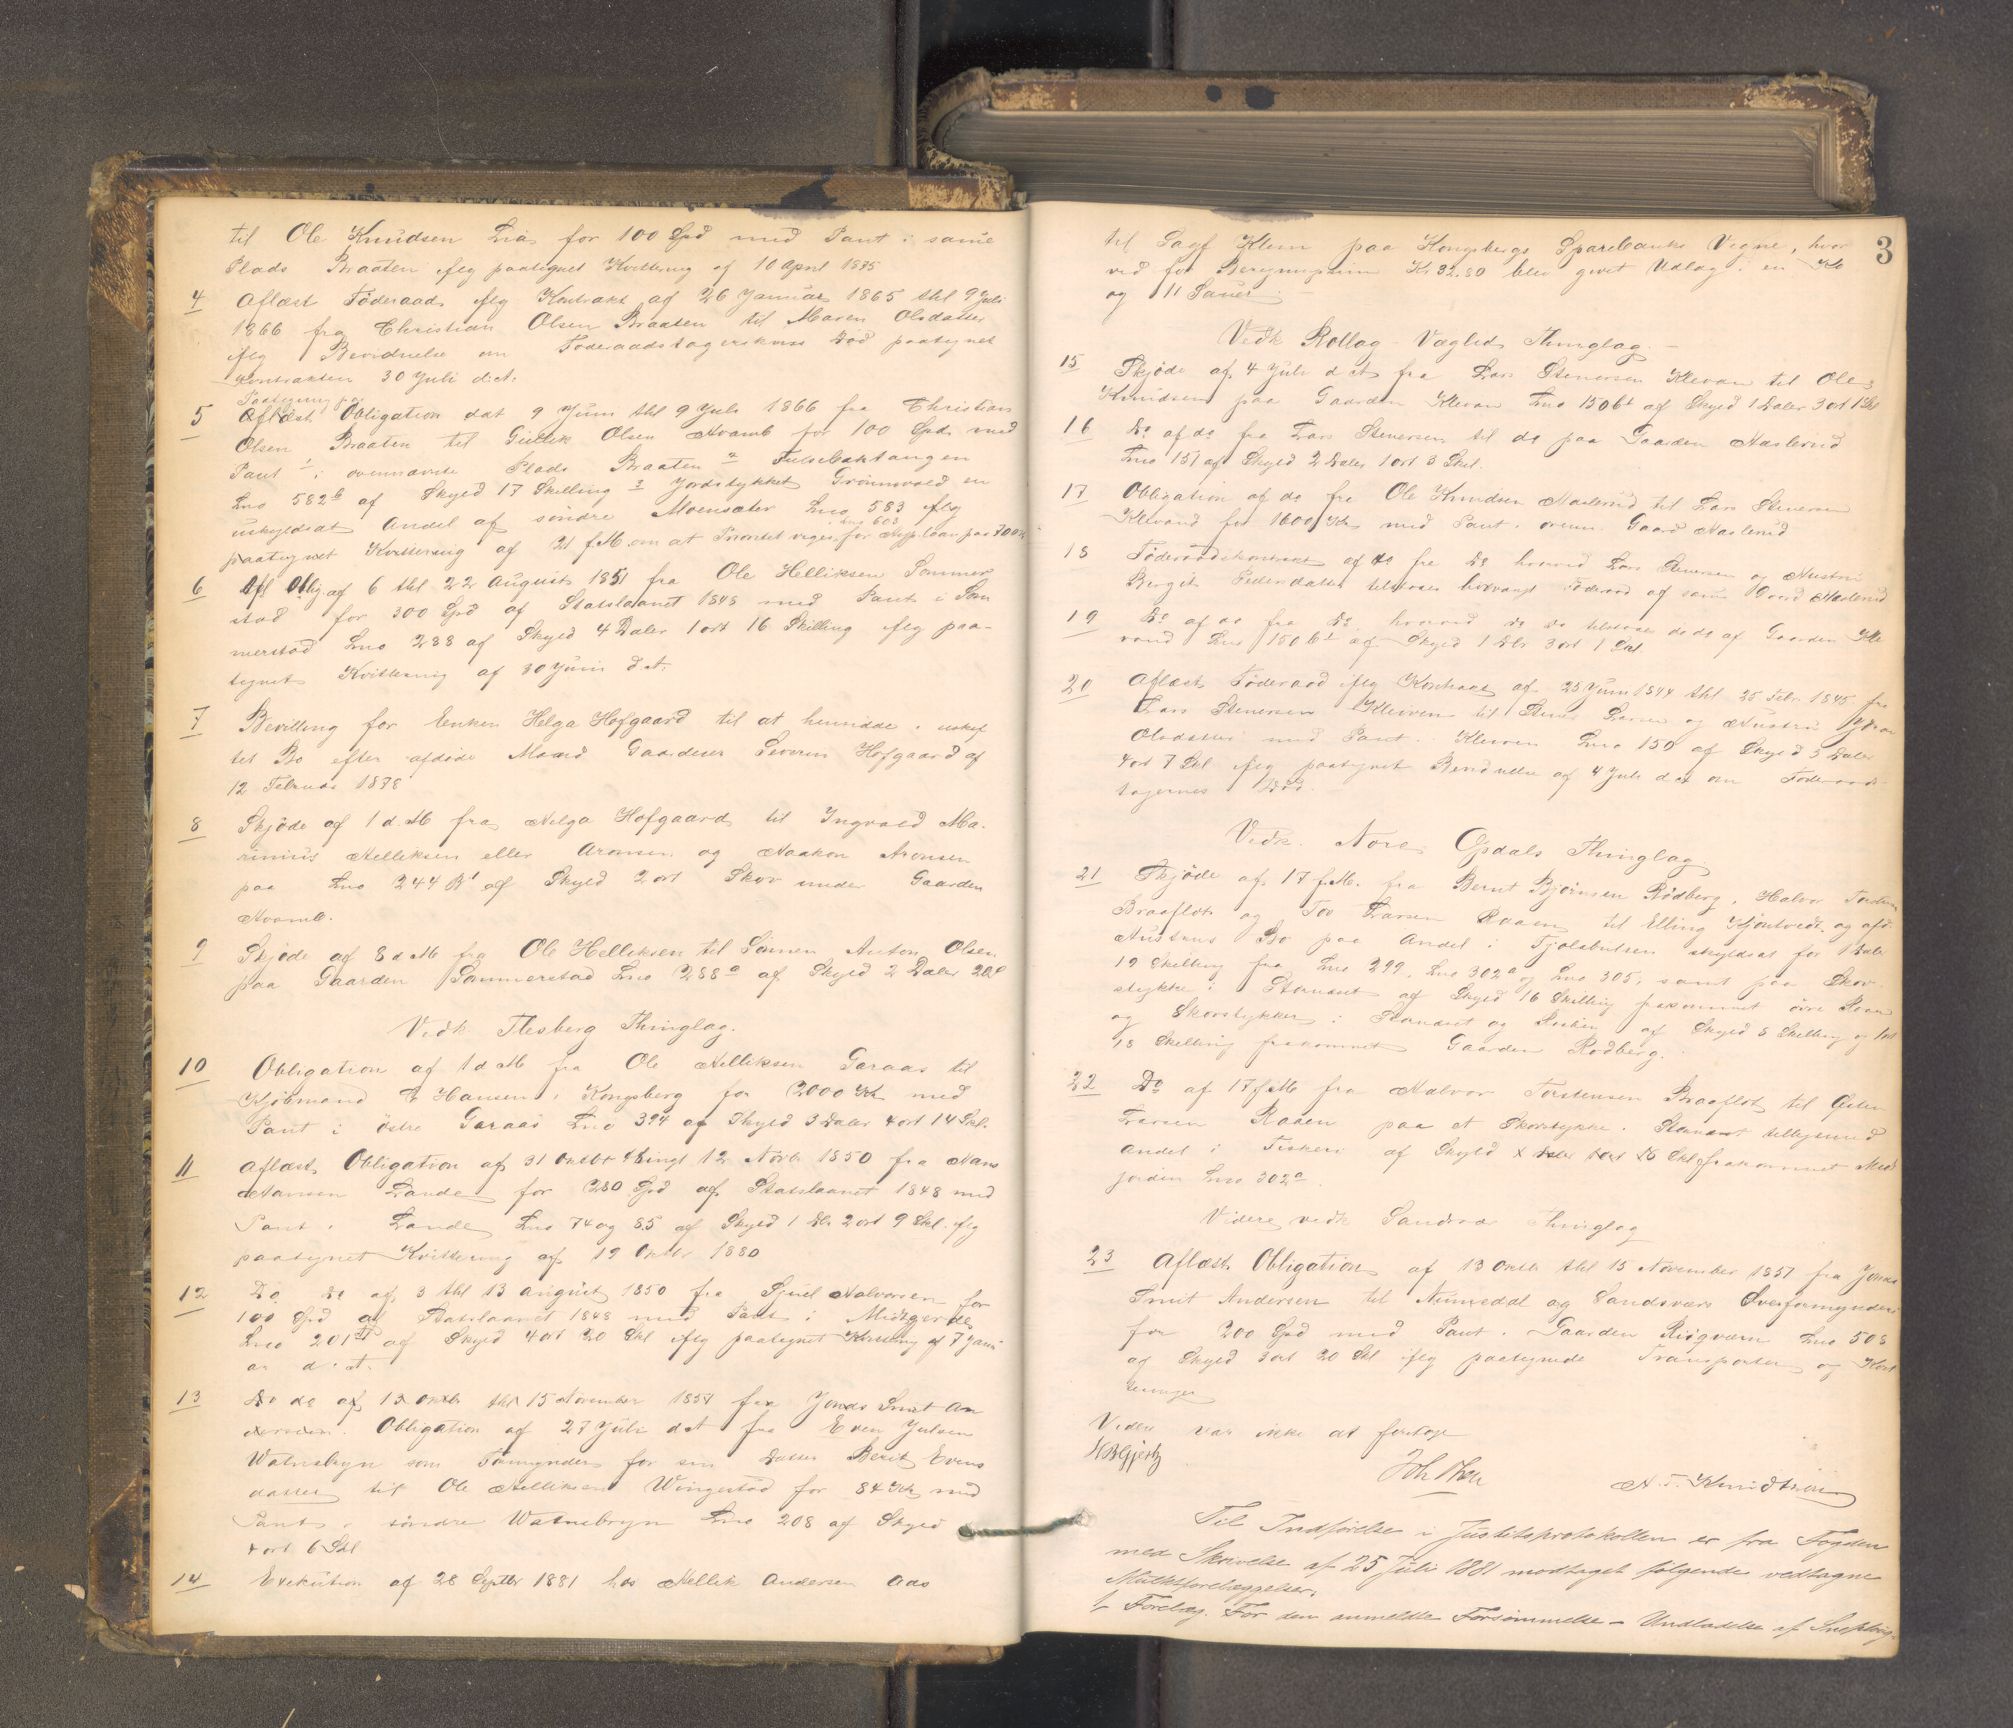 til Ole Knudsen Lia for 100 Spd med Pant i samme
Plads Braaten iflg paategnet Kvittering af 10 April 1875
4 Aflæst Föderaad iflg Kontrakt af 26 Januar 1865 thl 9 Juli
1866 fra Christian Olsen Braaten til Maren Olsdatter
iflg Bevidnelse om Föderaadstagerskens Död paategnet
Kontrakten 30 Juli d.A.
Paategning paa
5 Aflæst Obligation dat 9 Juni thl 9 Juli 1866 fra Christian
Olsen Braaten til Gullik Olsen Hvamb for 100 Spd med
Pant 1 i ovennævnte Plads Braaten 2 Fulsebaktangen
Lno 582b af Skyld 17 Skilling 3 Jordstykket Grönnvold en
uskyldsat Andel af söndre Moensæter Lno 583 iflg
Lno 603
paategnet Kvittering af 21 f.M. om at Prioritet viges for Hyp. laan paa 700 Kr
6 Afl Oblig. af 6 thl 22 August 1851 fra Ole Helliksen Sommer
stad for 300 Spd af Statslaanet 1848 med Pant i Som
merstad Lno 288 af Skyld 4 Daler 1 ort 16 Skilling iflg paa-
tegnet Kvittering af 30 Juni d.A.
7 Bevilling for Enken Helga Hofgaard til at hensidde i uskif
tet Bo efter afdöde Mand Gaardeier Severin Hofgaard af
12 Februar 1878
8 Skjöde af 1 d.M fra Helga Hofgaard til Ingvald Ma-
rinius Helliksen eller Aronsen og Haakon Aronsen
paa Lno 244 B1 af Skyld 2 ort Skov under Gaarden
Hvamb.
9 Skjöde af 8 d M fra Ole Helliksen til Sönnen Anton Olsen
paa Gaarden Sommerstad Lno 288a af Skyld 2 Daler
Vedk. Flesberg Thinglag.
10 Obligation af 1 d M fra Ole Helliksen Garaas til
Kjöbmand E Hansen i Kongsberg for 2000 Kr med
Pant i östre Garaas Lno 394 af Skyld 3 Daler 4 ort 14 Skl.
11 Aflæst Obligation af 31 Oktbr thingl 12 Novbr 1850 fra Hans
Hansen Lande for 280 Spd af Statslaanet 1848 med
Pant i Lande Lno 74 og 85 af Skyld 1 Dlr 2 ort 9 Skl. iflg
paategnet Kvittering af 19 Oktbr 1880
12 Do Do af 3 thl 13 August 1850 fra Sjuel Halvorsen for
100 Spd af Statslaanet 1848 med Pant i Midtgerde
Lno 201 af Skyld 4 ort 20 Skl iflg paategnet Kvittering af 7 Janu
ar d.A.
13 Do do af 13 Oktbr thl 15 November 1851 fra Jonas Smit An
dersen. Obligation af 27 Juli d.A fra Even Julsen
Watnebryn som Formynder for sin Datter Berit Evens
datter til Ole Helliksen Wingestad for 84 Kr med
Pant i söndre Watnebryn Lno 208 af Skyld
4 ort 6 Skl
14 Exekution af 28 Septbr 1881 hos Hellik Andersen Aas
3
til Sagf Klem paa Kongsbergs Sparebanks Vegne, hvor
ved for Kr 32.80 blev givet Udlæg i en Ko
og 11 Sauer.
Vedk Rollag-Væglids Thinglag.
15 Skjöde af 4 Juli d A fra Lars Stenersen Klevan til Ole
Knudsen paa Gaarden Klevan Lno 150b1 af Skyld 1 Daler 3 ort 1 Skl
16 Do af do fra Lars Stenersen til do paa Gaarden Haslerud
Lno 151 af Skyld 2 Daler 1 ort 3 Skl.
17 Obligation af do fra Ole Knudsen Haslerud til Lars Stenersen
Klevand for 1600 Kr med Pant i ovenn. Gaard Haslerud
18 Föderaadskontrakt af do fra Do hvorved Lars Stenersen og Hustru
Birgit Pedersdatter tilstaaes livsvarigt Föderaad af samme Gaard Haslerud
19 Do af do fra Do hvorved do do tilstaaes do do af Gaarden Kle
vand Lno 150b1 af Skyld 1 Dlr 3 ort 1 Skl
20 Aflæst Föderaad iflg Kontrakt af 25 Juni 1844 thl 25 Febr. 1845 fra
Lars Stenersen Kleven til Stener Larsen og Hustru Jöran
Olsdatter med Pant i Kleven Lno 150 af Skyld 5 Daler
4 ort 7 Skl iflg paategnet Bevidnelse af 4 Juli d A om Föderaads
tagernes Död.
Vedk. Nore Opdals Thinglag
21 Skjöde af 17 f.M. fra Bernt Björnsen Rödberg, Halvor Torstensen
Braaflot og Tov Larsen Raaen til Elling Kjöntvedt og afd.
Hustrus Bo paa Andel i Fjölebulien skyldsat for 1 Daler
19 Skilling fra Lno 299, Lno 302a og Lno 305, samt paa Skov
stykke i af Skyld 16 Skilling frakommet övre Raaen
og Skovstykker i og af Skyld 8 Skilling og 1 ort
18 Skilling frakommet Gaarden Rödberg.
22 Do af 17 f.M. fra Halvor Torstensen Braaflot til Östen
Larsen Raaen paa et Skovstykke i tilligemed
Andel i Fiskeri af Skyld 8 Skl frakommet Med
jorden Lno 302a.
Videre vedk Sandsvær Thinglag
23 Aflæst Obligation af 13 Oktbr thl 15 November 1851 fra Jonas
Smit Andersen til Numedal og Sandsværs Overformynderi
for 200 Spd med Pant i Gaarden Lno 508
af Skyld 3 ort 20 Skl iflg paategnede Transporter og Kvit
teringer
Videre var ikke at foretage
HBGjertz
A. T. Knudtsen
Til Indförelse i Justitsprotokollen er fra Fogden
med Skrivelse af 25 Juli 1881 modtaget fölgende vedtagne
Mulktforelæggelser:
1 Forelæg. For den anmeldte Forsömmelse – Undladelse af Sneplöig-